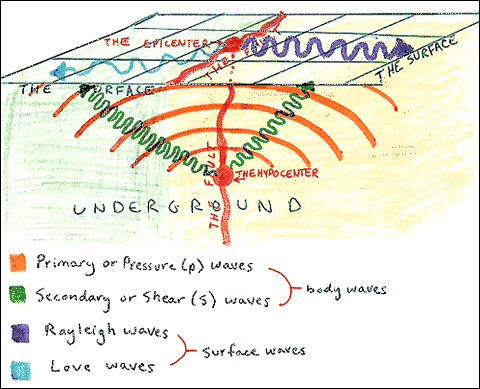 THE EPICENTER
THE FAULT
THE SURFACE
THE SURFACE
THE FAULT
THE HYPOCENTER
UNDERGROUND
Primary or Pressure (p) waves
Secondary or Shear (s) waves
body waves
Rayleigh waves
Love waves
surface waves